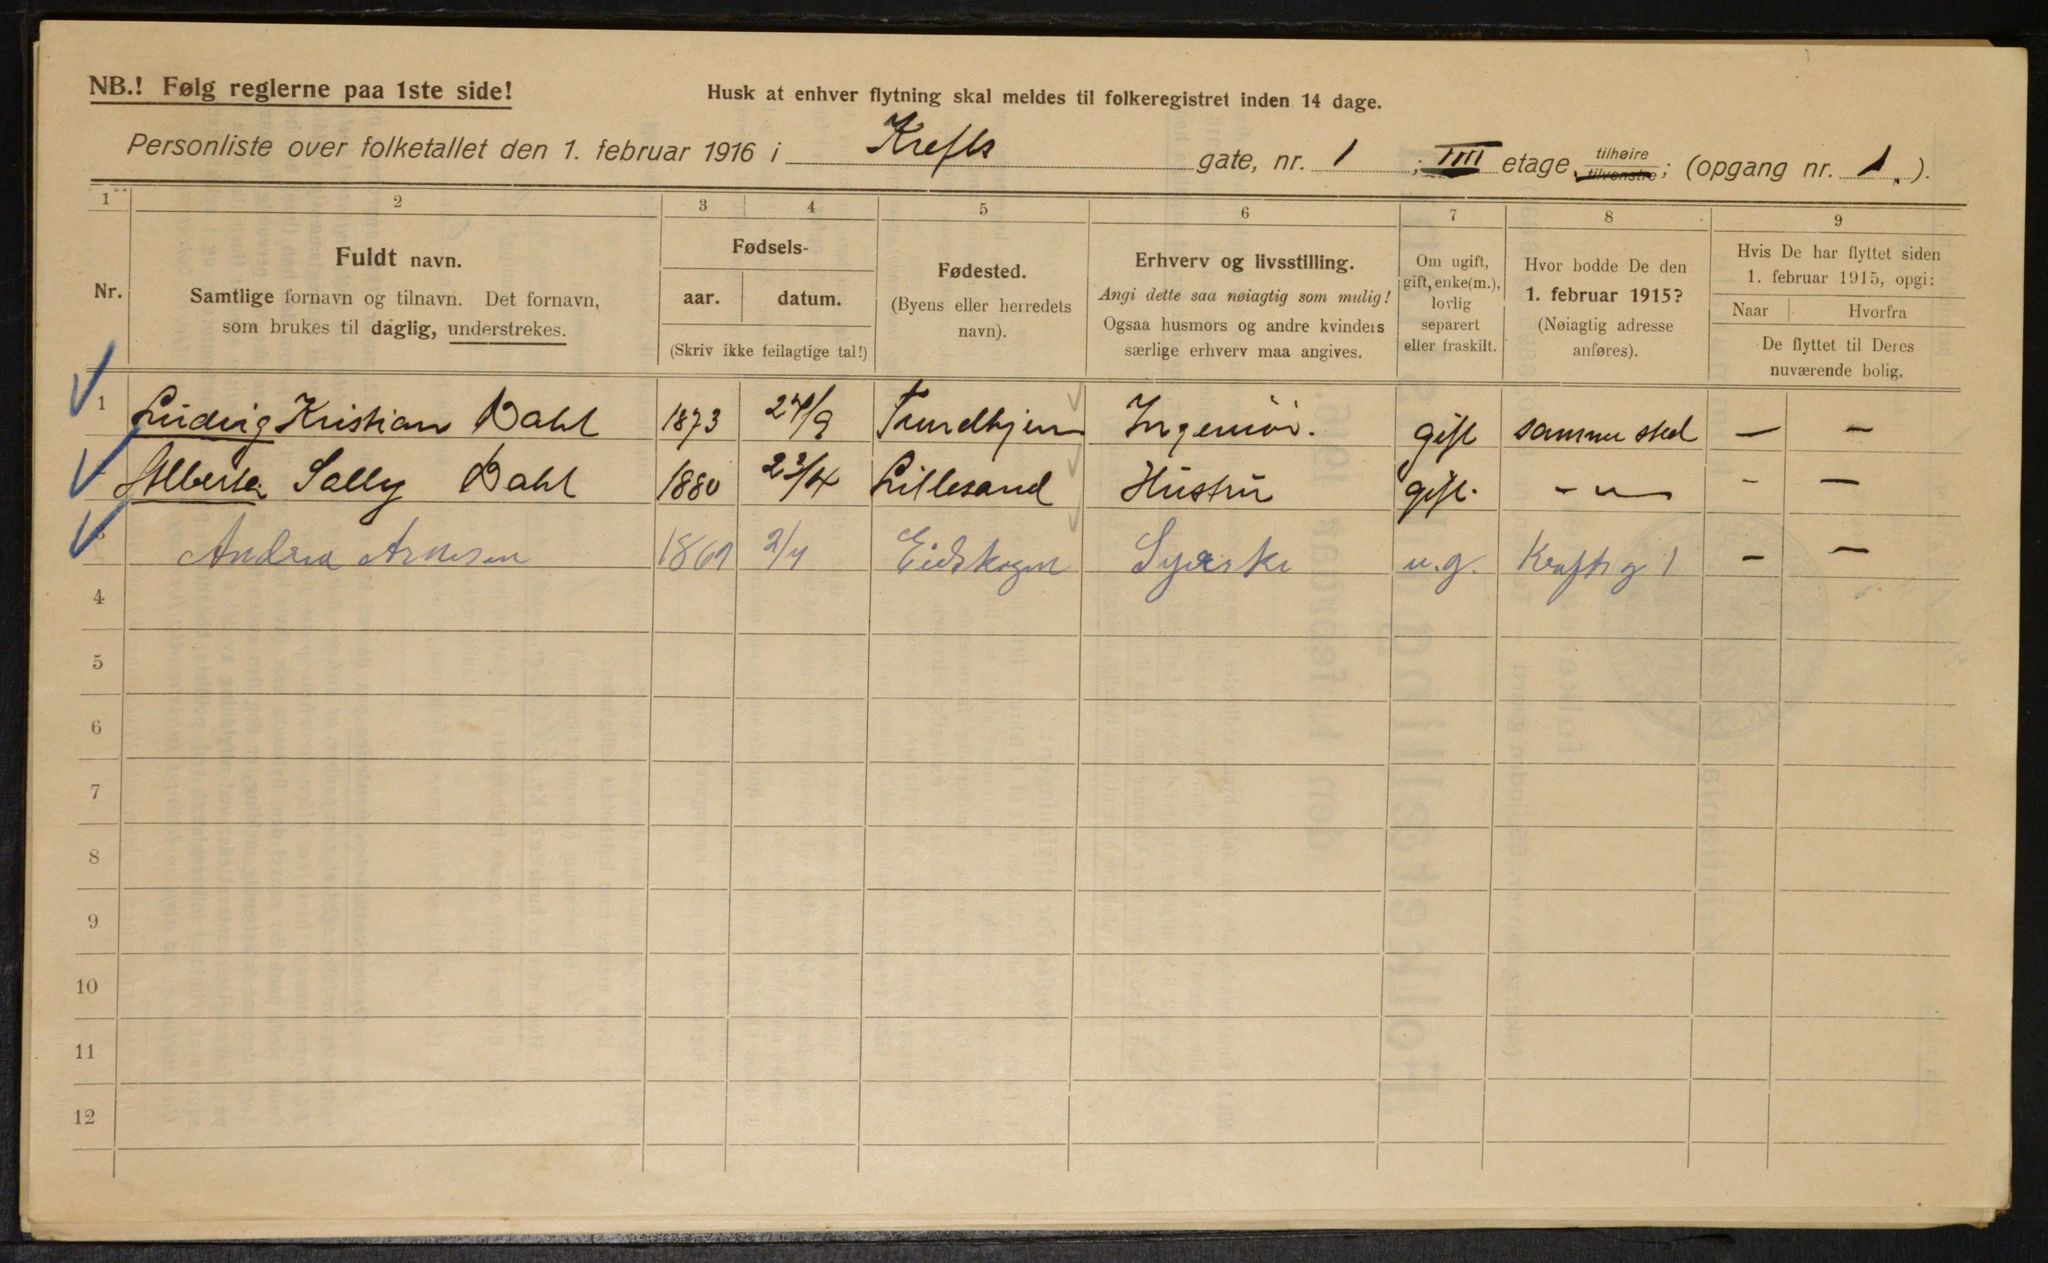 NB.! Følg reglerne paa 1ste side!
Husk at enhver flytning skal meldes til folkeregistret inden 14 dage.
Personliste over folketallet den 1. februar 1916 i Krefts gate, nr. 1 ; IIII etage, tilhøire tilvenstre; (opgang nr. 1.).
1 2 3 4 5 6 7 8 9
Nr.
Fuldt navn.
Samtlige fornavn og tilnavn. Det fornavn,
som brukes til daglig, understrekes.
Fødsels-
aar. datum.
(Skriv ikke feilagtige tal!)
Fødested.
(Byens eller herredets
navn).
Erhverv og livsstilling.
Angi dette saa nøiagtig som mulig!
Ogsaa husmors og andre kvinders
særlige erhverv maa angives.
Om ugift,
gift, enke(m.),
lovlig
separert
eller fraskilt.
Hvor bodde De den
1. februar 1915?
(Nøiagtig adresse
anføres).
Hvis De har flyttet siden
1. februar 1915, opgi:
Naar Hvorfra
De flyttet til Deres
nuværende bolig.
1 Ludvig Kristian Dahl 1873 24/9 Trondhjem Ingeniør. gift samme sted — —
Alberta Sally Dahl 1880 23/4 Lillesand Hustru gift. - " - - —
3 Andrea Arnesen 1869 2/4 Eidskogen Syerske u.g. Kraftsg 1 — —
4
5
6
7
8
9
10
11
12